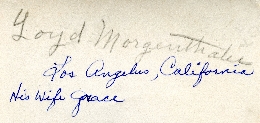 Loyd Morgenthaler
Los Angelus, California
His Wife Grace